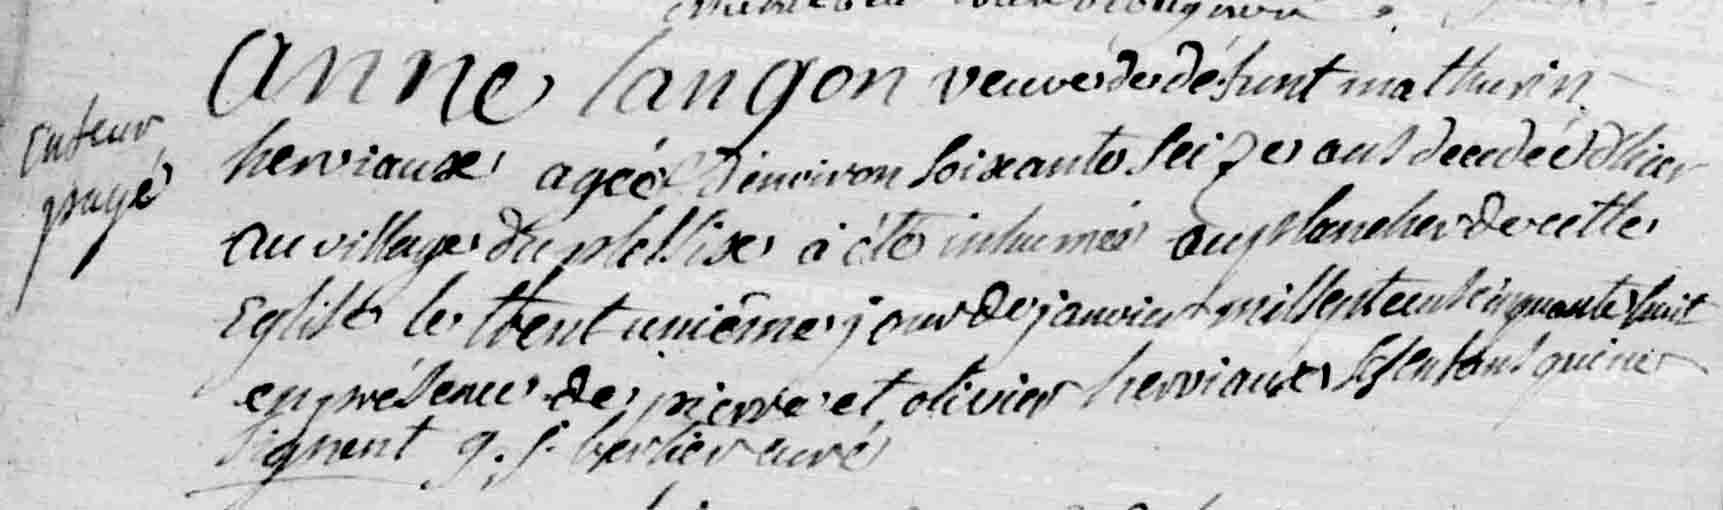 anne langon veuve de défunt mathurin
herviaux agée d'environ soixante seize ans decedée d'hier
payé
au village du plessix à été inhumée au plancher de cette
Eglise le trent unième jour de janvier mil sept cent cinquante huit
en présence de pierre et olivier herviaux ses enfans qui ne
signent g. j. berlier curé